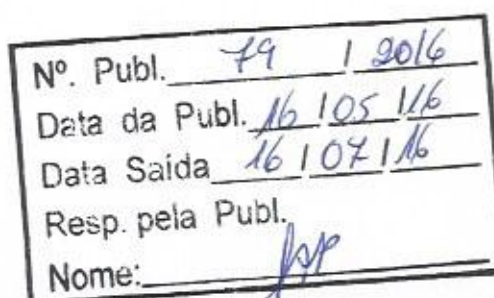 Nº. Publ. 79 / 2016
Data da Publ. 16 / 05 / 16
Data Saída 16 / 07 / 16
Resp. pela Publ.
Nome: